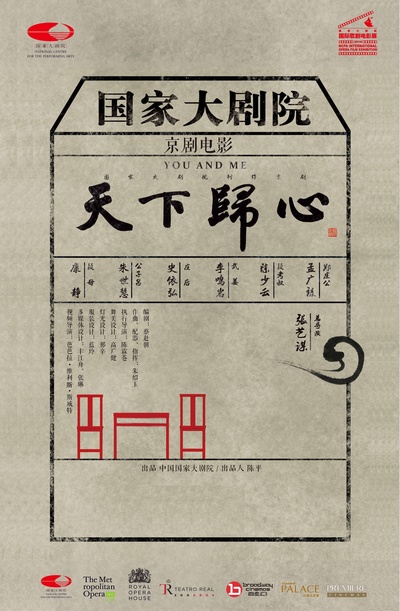 国家大剧院
NATIONAL CENTRE
FOR THE PERFORMING ARTS
国际歌剧电影展
NCPA INTERNATIONAL
OPERA FILM EXHIBITION
国家大剧院
京剧电影
YOU AND ME
国家大剧院制作京剧
天下歸心
郑庄公
孟广禄
颍考叔
陈少云
武姜
李鸣岩
庄后
史依弘
公子吕
朱世慧
段母
康静
总导演
张艺谋
编剧：蔡赴朝
作曲、配器、指挥：朱绍玉
执行导演：陈霖苍
舞美设计：高广健
灯光设计：郭辛
服装设计：蓝玲
多媒体设计：丰江舟、张琳
视频导演：芭芭拉·维利斯·斯威特
出品 中国国家大剧院 / 出品人 陈平
The Met
ropolitan
Opera
ROYAL
OPERA
HOUSE
TEATRO REAL
broadway
cinemas
百老汇
PALACE
PREMIERE